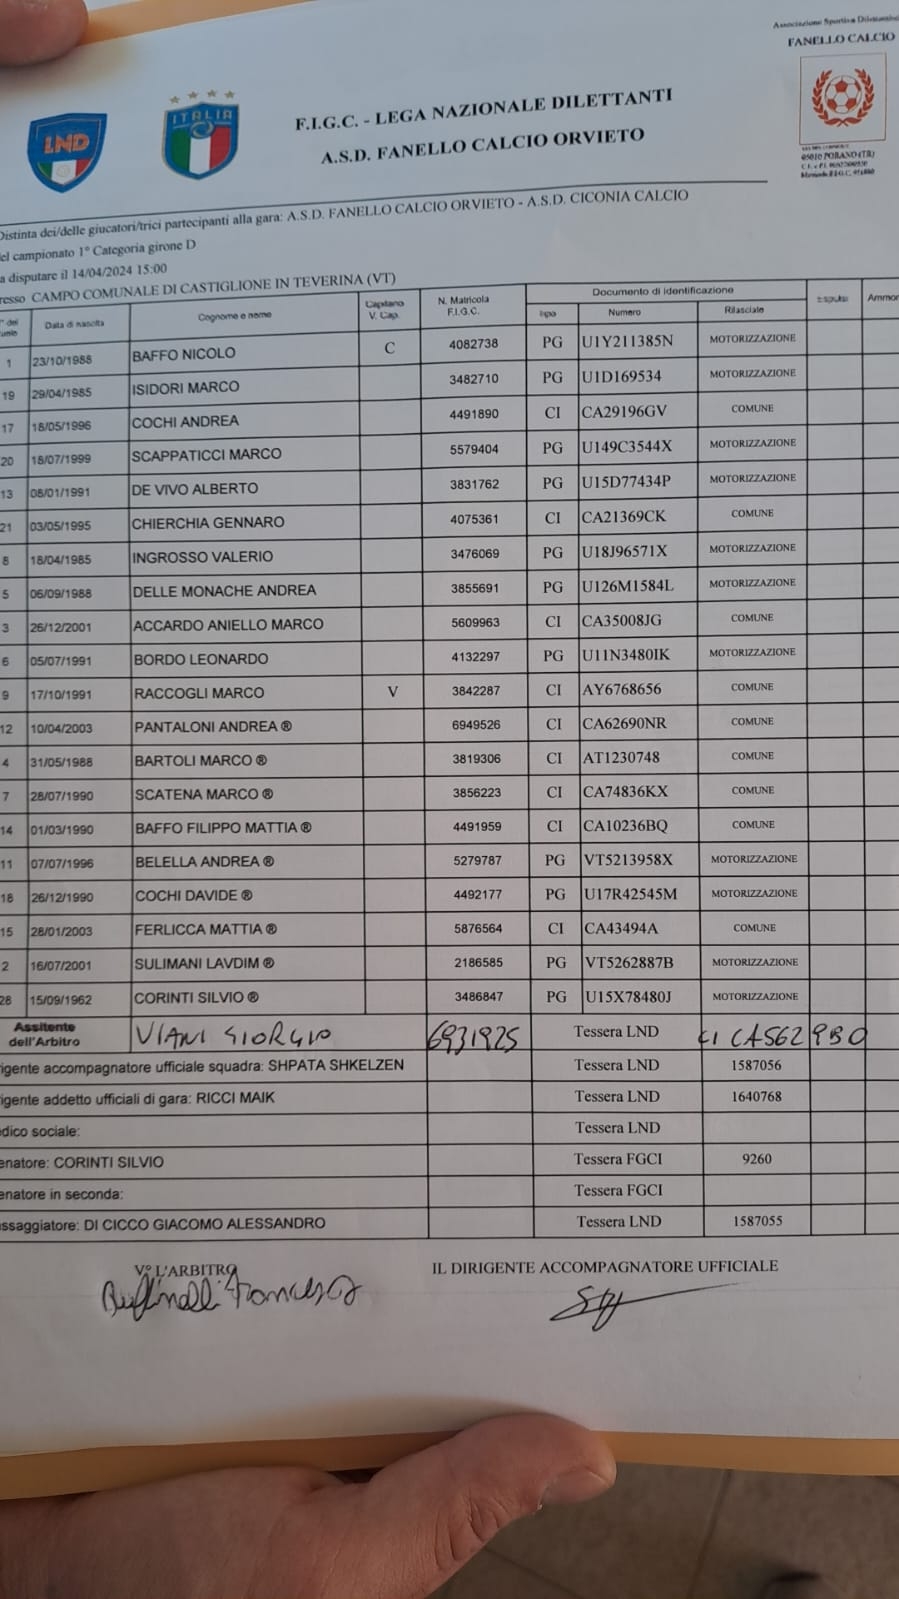 Associazione Sportiva Dilettantis
FANELLO CALCIO
LND
ITALIA
F.I.G.C. - LEGA NAZIONALE DILETTANTI
A.S.D. FANELLO CALCIO ORVIETO
05010 PORANO (TR)
Distinta dei/delle giucatori/trici partecipanti alla gara: A.S.D. FANELLO CALCIO ORVIETO - A.S.D. CICONIA CALCIO
el campionato 1° Categoria girone D
a disputare il 14/04/2024 15:00
resso CAMPO COMUNALE DI CASTIGLIONE IN TEVERINA (VT)
Data di nascita Cognome e nome Capitano V. Cap. N. Matricola F.I.G.C. Documento di identificazione Espulsi Ammon
tipo Numero Rilasciato
1 23/10/1988 BAFFO NICOLO C 4082738 PG U1Y211385N MOTORIZZAZIONE
19 29/04/1985 ISIDORI MARCO 3482710 PG U1D169534 MOTORIZZAZIONE
17 18/05/1996 COCHI ANDREA 4491890 CI CA29196GV COMUNE
20 18/07/1999 SCAPPATICCI MARCO 5579404 PG U149C3544X MOTORIZZAZIONE
13 08/01/1991 DE VIVO ALBERTO 3831762 PG U15D77434P MOTORIZZAZIONE
21 03/05/1995 CHIERCHIA GENNARO 4075361 CI CA21369CK COMUNE
8 18/04/1985 INGROSSO VALERIO 3476069 PG U18J96571X MOTORIZZAZIONE
5 06/09/1988 DELLE MONACHE ANDREA 3855691 PG U126M1584L MOTORIZZAZIONE
3 26/12/2001 ACCARDO ANIELLO MARCO 5609963 CI CA35008JG COMUNE
6 05/07/1991 BORDO LEONARDO 4132297 PG U11N3480IK MOTORIZZAZIONE
9 17/10/1991 RACCOGLI MARCO V 3842287 CI AY6768656 COMUNE
12 10/04/2003 PANTALONI ANDREA ® 6949526 CI CA62690NR COMUNE
4 31/05/1988 BARTOLI MARCO ® 3819306 CI AT1230748 COMUNE
7 28/07/1990 SCATENA MARCO ® 3856223 CI CA74836KX COMUNE
14 01/03/1990 BAFFO FILIPPO MATTIA ® 4491959 CI CA10236BQ COMUNE
11 07/07/1996 BELELLA ANDREA ® 5279787 PG VT5213958X MOTORIZZAZIONE
18 26/12/1990 COCHI DAVIDE ® 4492177 PG U17R42545M MOTORIZZAZIONE
15 28/01/2003 FERLICCA MATTIA ® 5876564 CI CA43494A COMUNE
2 16/07/2001 SULIMANI LAVDIM ® 2186585 PG VT5262887B MOTORIZZAZIONE
28 15/09/1962 CORINTI SILVIO ® 3486847 PG U15X78480J MOTORIZZAZIONE
Assitente dell'Arbitro VIANI GIORGIO 6931925 Tessera LND CI CA562
rigente accompagnatore ufficiale squadra: SHPATA SHKELZEN Tessera LND 1587056
rigente addetto ufficiali di gara: RICCI MAIK Tessera LND 1640768
edico sociale: Tessera LND
enatore: CORINTI SILVIO Tessera FGCI 9260
enatore in seconda: Tessera FGCI
assaggiatore: DI CICCO GIACOMO ALESSANDRO Tessera LND 1587055
V° L'ARBITRO IL DIRIGENTE ACCOMPAGNATORE UFFICIALE
Francesco